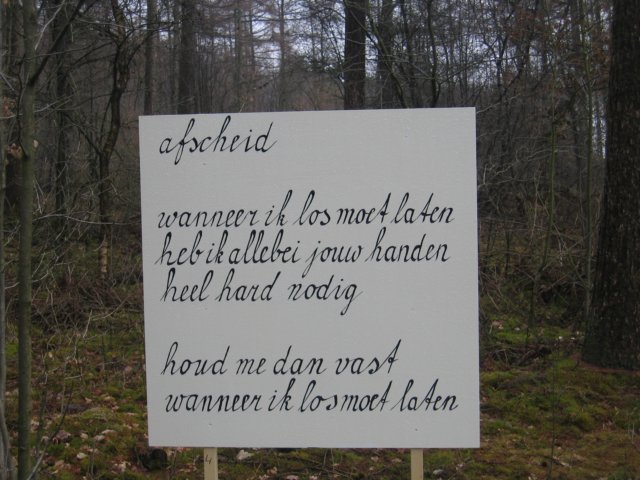 afscheid
wanneer ik los moet laten
heb ik allebei jouw handen
heel hard nodig
houd me dan vast
wanneer ik los moet laten
4